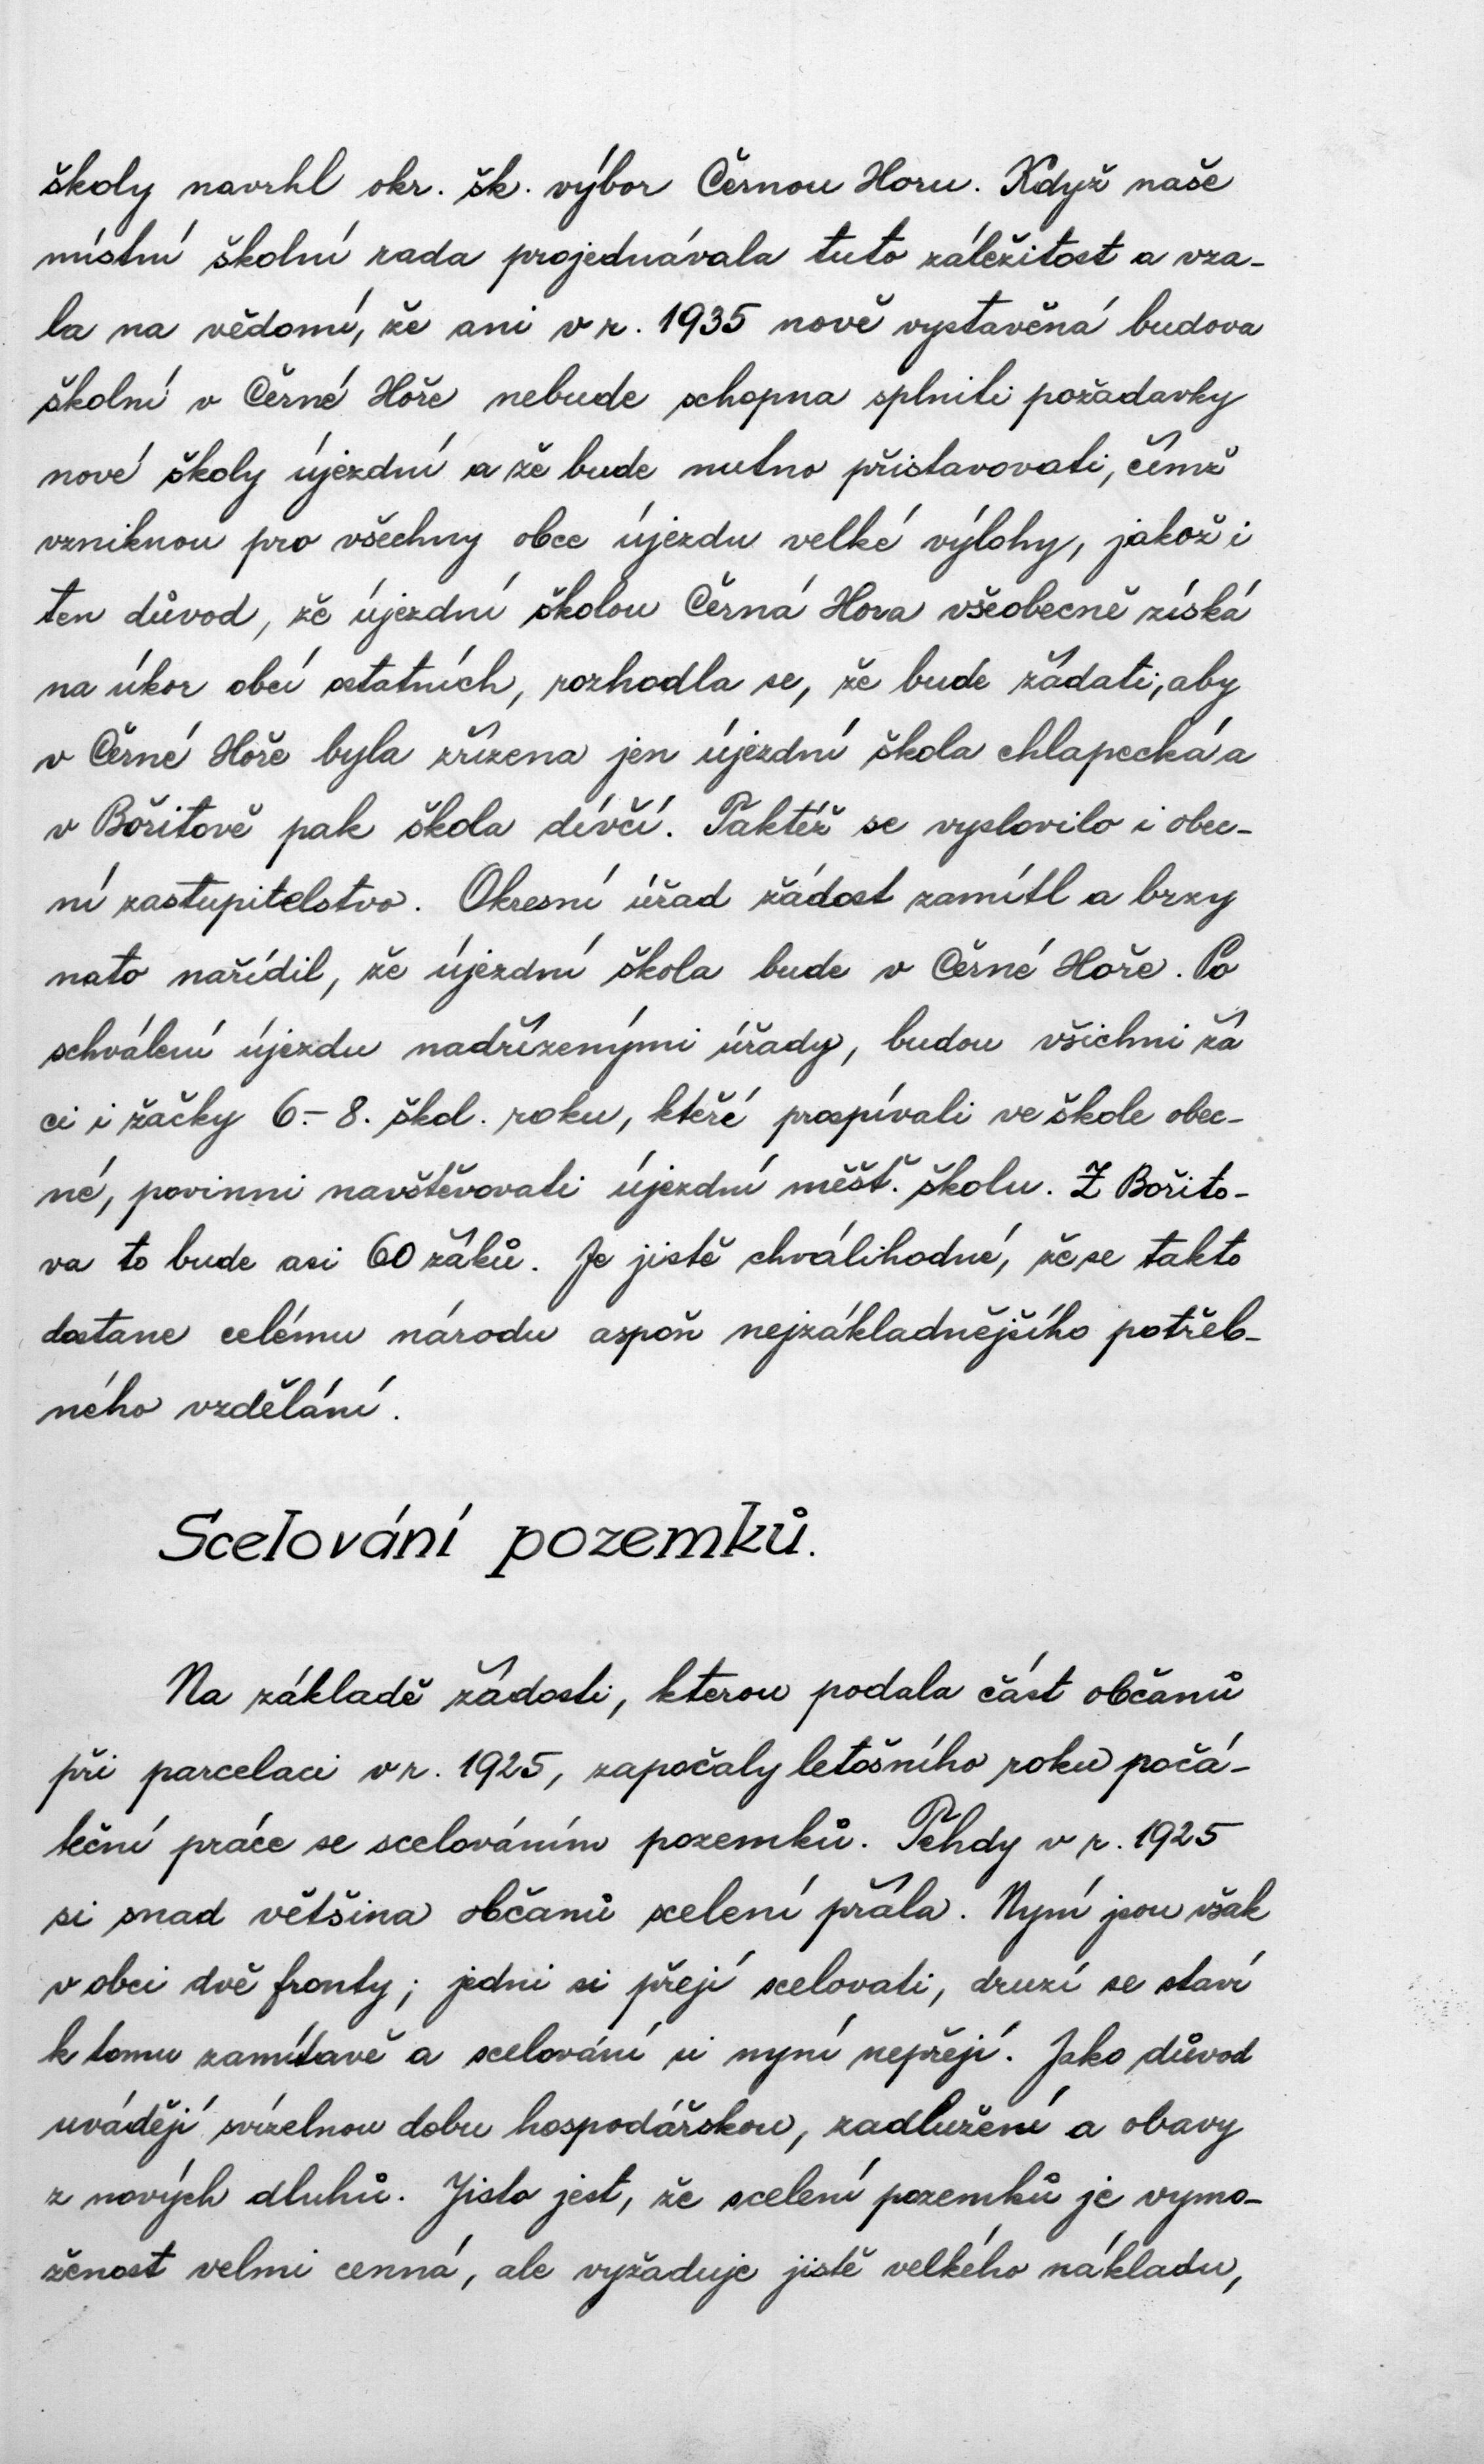 školy navrhl okr. šk. výbor Černou Horu. Když naše
místní školní rada projednávala tuto záležitost a vza-
la na vědomí, že ani v r. 1935 nově vystavěná budova
školní v Černé Hoře nebude schopna splniti požadavky
nové školy újezdní a že bude nutno přistavovati, čímž
vzniknou pro všechny obce újezdu velké výlohy, jakož i
ten důvod, že újezdní školou Černá Hora všeobecně získá
na úkor obcí ostatních, rozhodla se, že bude žádati, aby
v Černé Hoře byla zřízena jen újezdní škola chlapecká a
v Bořitově pak škola dívčí. Taktéž se vyslovilo i obec-
ní zastupitelstvo. Okresní úřad žádost zamítl a brzy
nato nařídil, že újezdní škola bude v Černé Hoře. Po
schválení újezdu nadřízenými úřady, budou všichni žá
ci i žačky 6.-8. škol. roku, kteří prospívali ve škole obec-
né, povinni navštěvovati újezdní měšť. školu. Z Bořito-
va to bude asi 60 žáků. Je jistě chválihodné, že se takto
dostane celému národu aspoň nejzákladnějšího potřeb-
ného vzdělání.
Scelování pozemků.
Na základě žádosti, kterou podala část občanů
při parcelaci v r. 1925, započaly letošního roku počá-
teční práce se scelováním pozemků. Tehdy v r. 1925
si snad většina občanů scelení přála. Nyní jsou však
v obci dvě fronty; jedni si přejí scelovati, druzí se staví
k tomu zamítavě a scelování si nyní nepřejí. Jako důvod
uvádějí svízelnou dobu hospodářskou, zadlužení a obavy
z nových dluhů. Jisto jest, že scelení pozemků je vymo-
ženost velmi cenná, ale vyžaduje jistě velkého nákladu,